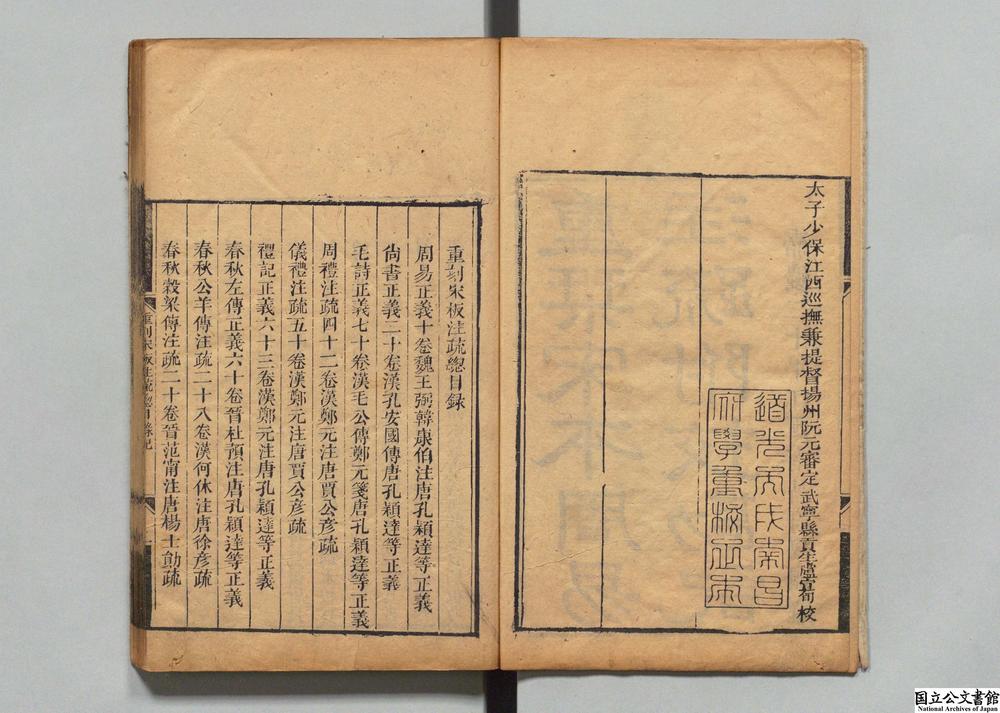 太子少保江西巡撫兼提督揚州阮元審定 武寧縣貢生盧宣旬校
道光丙戌南昌
府學重栞正本
重刻宋板注疏總目録
周易正義十卷魏王弼韓康伯注唐孔穎達等正義
尙書正義二十卷漢孔安國傳唐孔穎達等正義
毛詩正義七十卷漢毛公傳鄭元箋唐孔穎達等正義
周禮注疏四十二卷漢鄭元注唐賈公彥疏
儀禮注疏五十卷漢鄭元注唐賈公彥疏
禮記正義六十三卷漢鄭元注唐孔穎達等正義
春秋左傳正義六十卷晉杜預注唐孔穎達等正義
春秋公羊傳注疏二十八卷漢何休注唐徐彥疏
春秋穀梁傳注疏二十卷晉范甯注唐楊士勛疏
重刻宋板注疏總目錄記
国立公文書館
National Archives of Japan